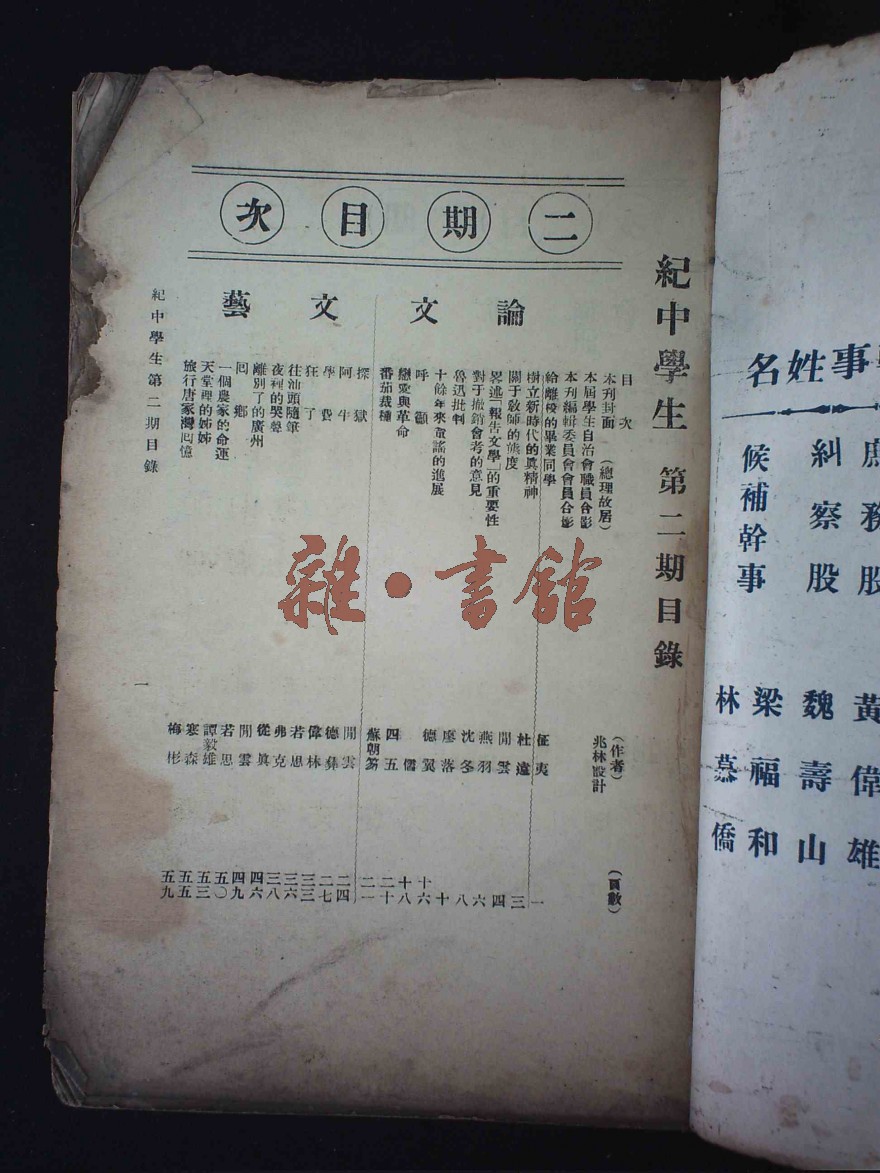 紀中學生 第二期目錄
二期目次
目次 (作者) (頁數)
本刊封面 (總理故居) 兆林設計
本屆學生自治會職員合影
本刊編輯委員會會員合影
論文
給離校的畢業同學 征夷 一
樹立新時代的眞精神 杜遠 三
關于敎師的態度 開雲 四
畧述「報告文學」的重要性 燕羽 六
對于撤銷會考的意見 沈冬 八
魯迅批判 廖落 十
十餘年來童謠的進展 德翼 十六
呼籲 儒 十八
戀愛與革命 四五 二十
番茄栽種 蘇朝笏 二一
文藝
探獄 開雲 二四
阿牛 德彝 二七
學費 偉林 三三
狂了 若思 三六
往汕頭隨筆 弗克 三八
夜裡的哭聲 從眞 四六
離別了的廣州 開雲 四九
囘鄉 若思 五〇
一個農家的命運 譚毅雄 五三
天堂裡的姊姊 寒森 五五
旅行唐家灣囘憶 梅彬 五九
紀中學生第二期目錄
一
雜·書館
事姓名
庶務股 黃偉雄
糾察股 魏壽山
候補幹事 梁福和
林慕僑